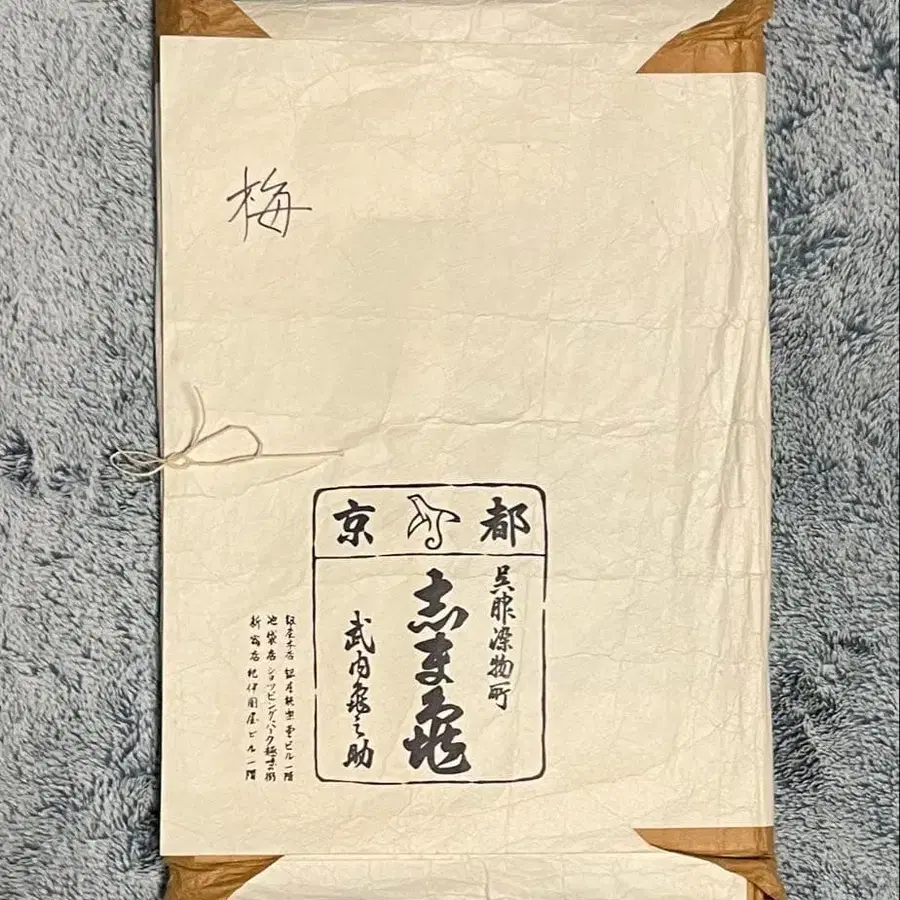 梅
都京
呉服染物所
志ま亀
武内亀之助
銀座本店 銀座鳩居堂ビル一階
池袋店 ショッピングパーク
新宿店 紀伊國屋ビル一階